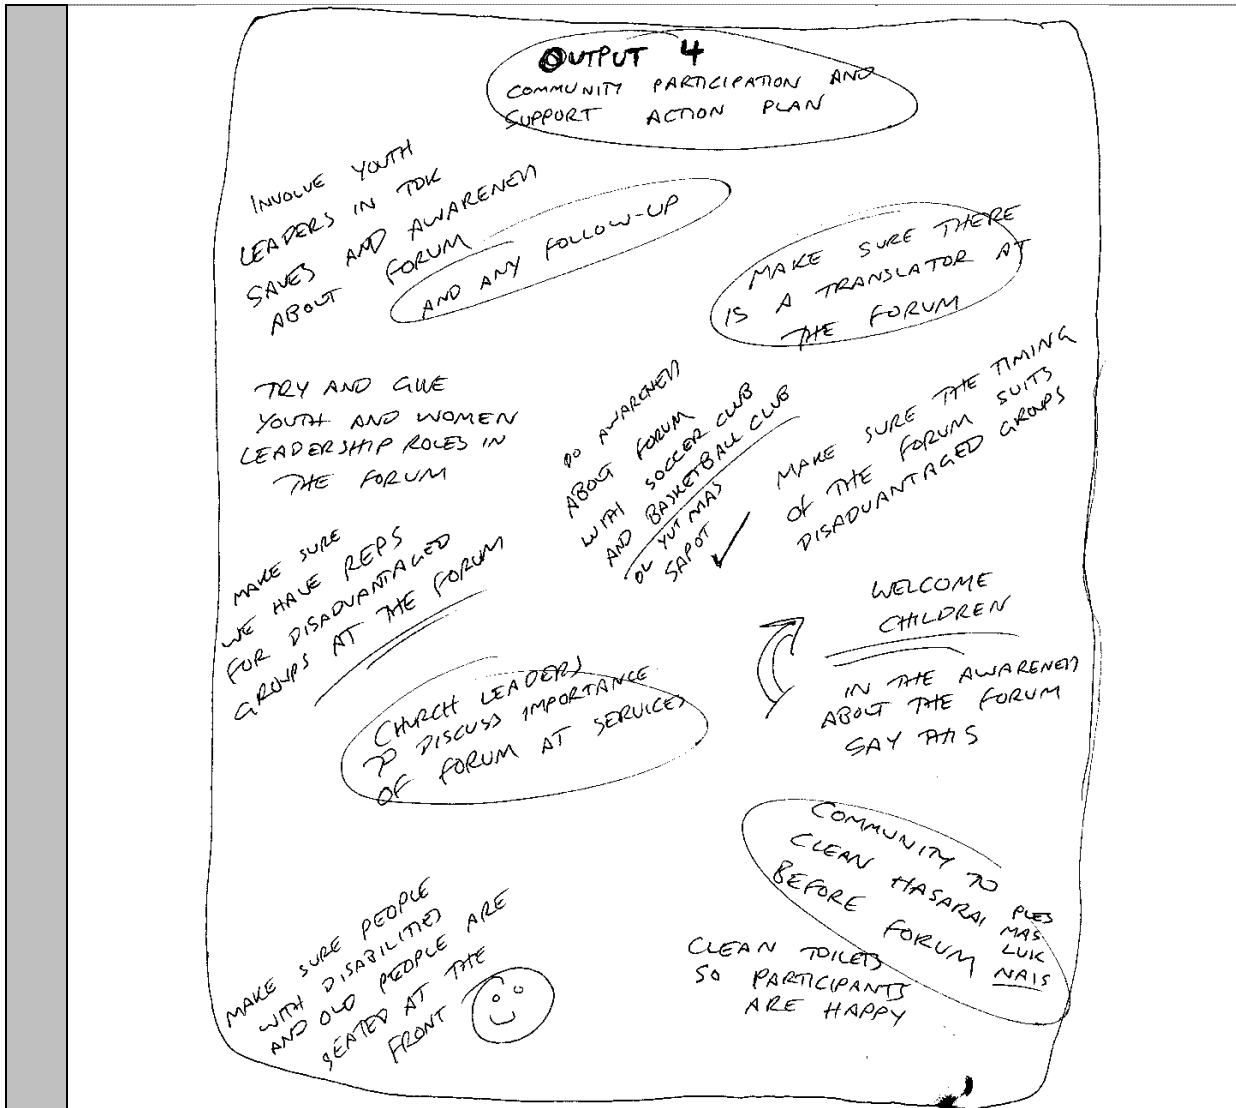 OUTPUT 4
COMMUNITY PARTICIPATION AND
SUPPORT ACTION PLAN
INVOLVE YOUTH
LEADERS IN TOK
SAVES AND AWARENESS
ABOUT FORUM
AND ANY FOLLOW-UP
MAKE SURE THERE
IS A TRANSLATOR AT
THE FORUM
TRY AND GIVE
YOUTH AND WOMEN
LEADERSHIP ROLES IN
THE FORUM
DO AWARENESS
ABOUT FORUM
WITH SOCCER CLUB
AND BASKETBALL CLUB
OL YUT MAS
SAPOT
MAKE SURE THE TIMING
OF THE FORUM SUITS
DISADVANTAGED GROUPS
MAKE SURE
WE HAVE REPS
FOR DISADVANTAGED
GROUPS AT THE FORUM
WELCOME
CHILDREN
IN THE AWARENESS
ABOUT THE FORUM
SAY THIS
CHURCH LEADERS
TO DISCUSS IMPORTANCE
OF FORUM AT SERVICES
COMMUNITY TO
CLEAN HASARAI
BEFORE FORUM
PLES
MAS
LUK
NAIS
MAKE SURE PEOPLE
WITH DISABILITIES
AND OLD PEOPLE ARE
SEATED AT THE
FRONT
CLEAN TOILETS
SO PARTICIPANTS
ARE HAPPY